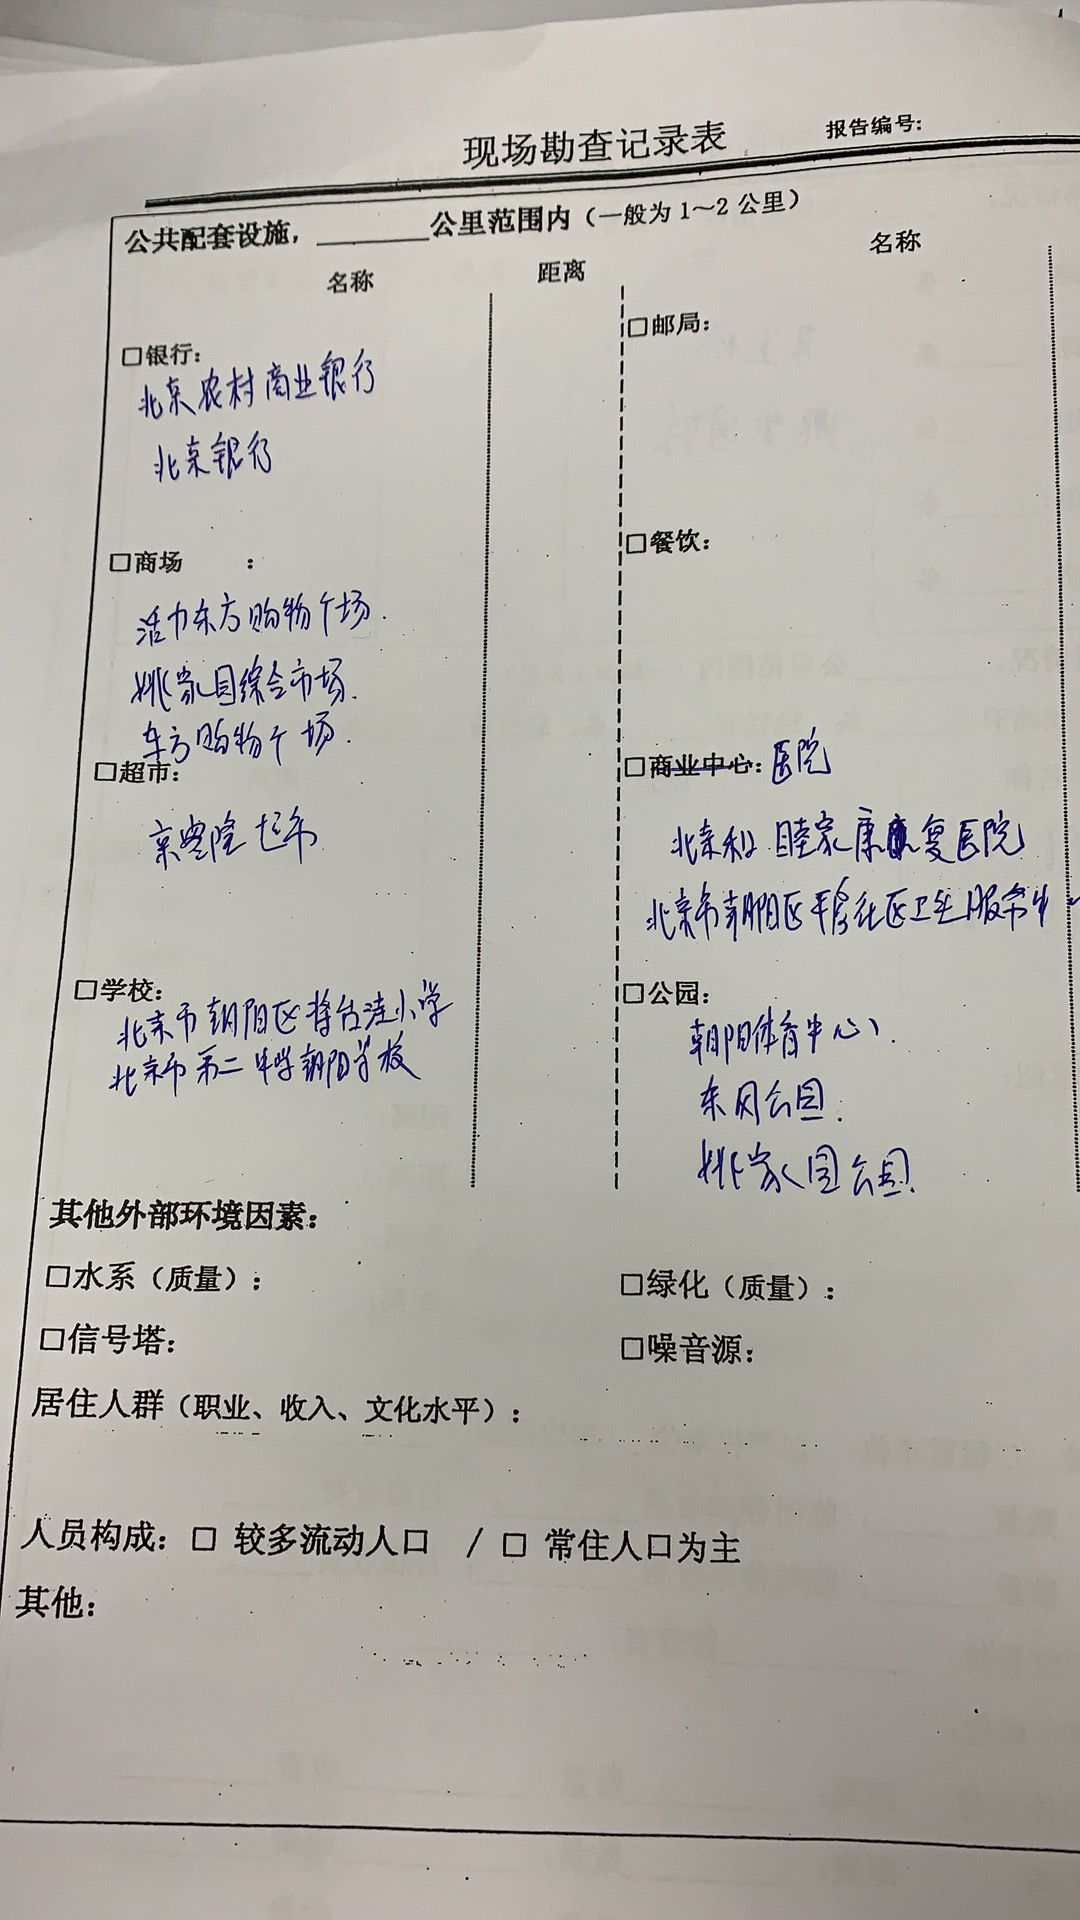 现场勘查记录表
报告编号:
公共配套设施，________公里范围内（一般为1～2公里）
名称 距离 名称
□银行:
北京农村商业银行
北京银行
□邮局:
□商场 :
活力东方购物广场.
姚家园综合市场.
东方购物广场.
□餐饮:
□超市:
京客隆超市
□商业中心: 医院
北京和睦家康复医院
北京市朝阳区平房社区卫生服务中
□学校:
北京市朝阳区将台洼小学
北京市第二中学朝阳学校
□公园:
朝阳体育中心、
东风公园.
姚家园公园.
其他外部环境因素:
□水系（质量）: □绿化（质量）:
□信号塔: □噪音源:
居住人群（职业、收入、文化水平）:
人员构成: □ 较多流动人口 / □ 常住人口为主
其他: